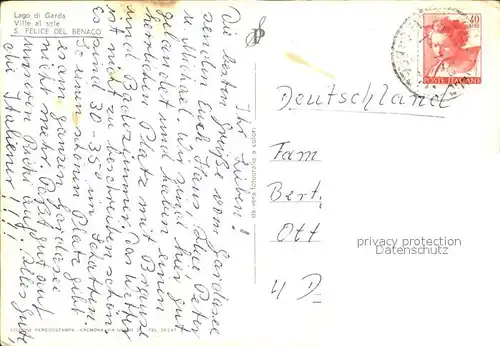 Lago di Garda
Ville al sole
S. FELICE DEL BENACO
Ihr Lieben!
Die besten Grüße vom Gardasee
senden Euch Hans, Ilse, Peter
u. Wir sind hier gut
gelandet und haben einen
herrlichen Platz mit Brause
und Badezimmer. Das Wetter
ist nicht zu beschreiben schön
es sind 30-35° im Schatten
So einen schönen Platz gibt
es am ganzen Gardasee
nicht mehr. Paßt gut auf
auf. Alles Gute,
die Italiener!!!
da vera fotografia a colori
40
POSTE ITALIANE
Deutschland
Fam
Bert.
Ott
4 D
privacy protection
Datenschutz